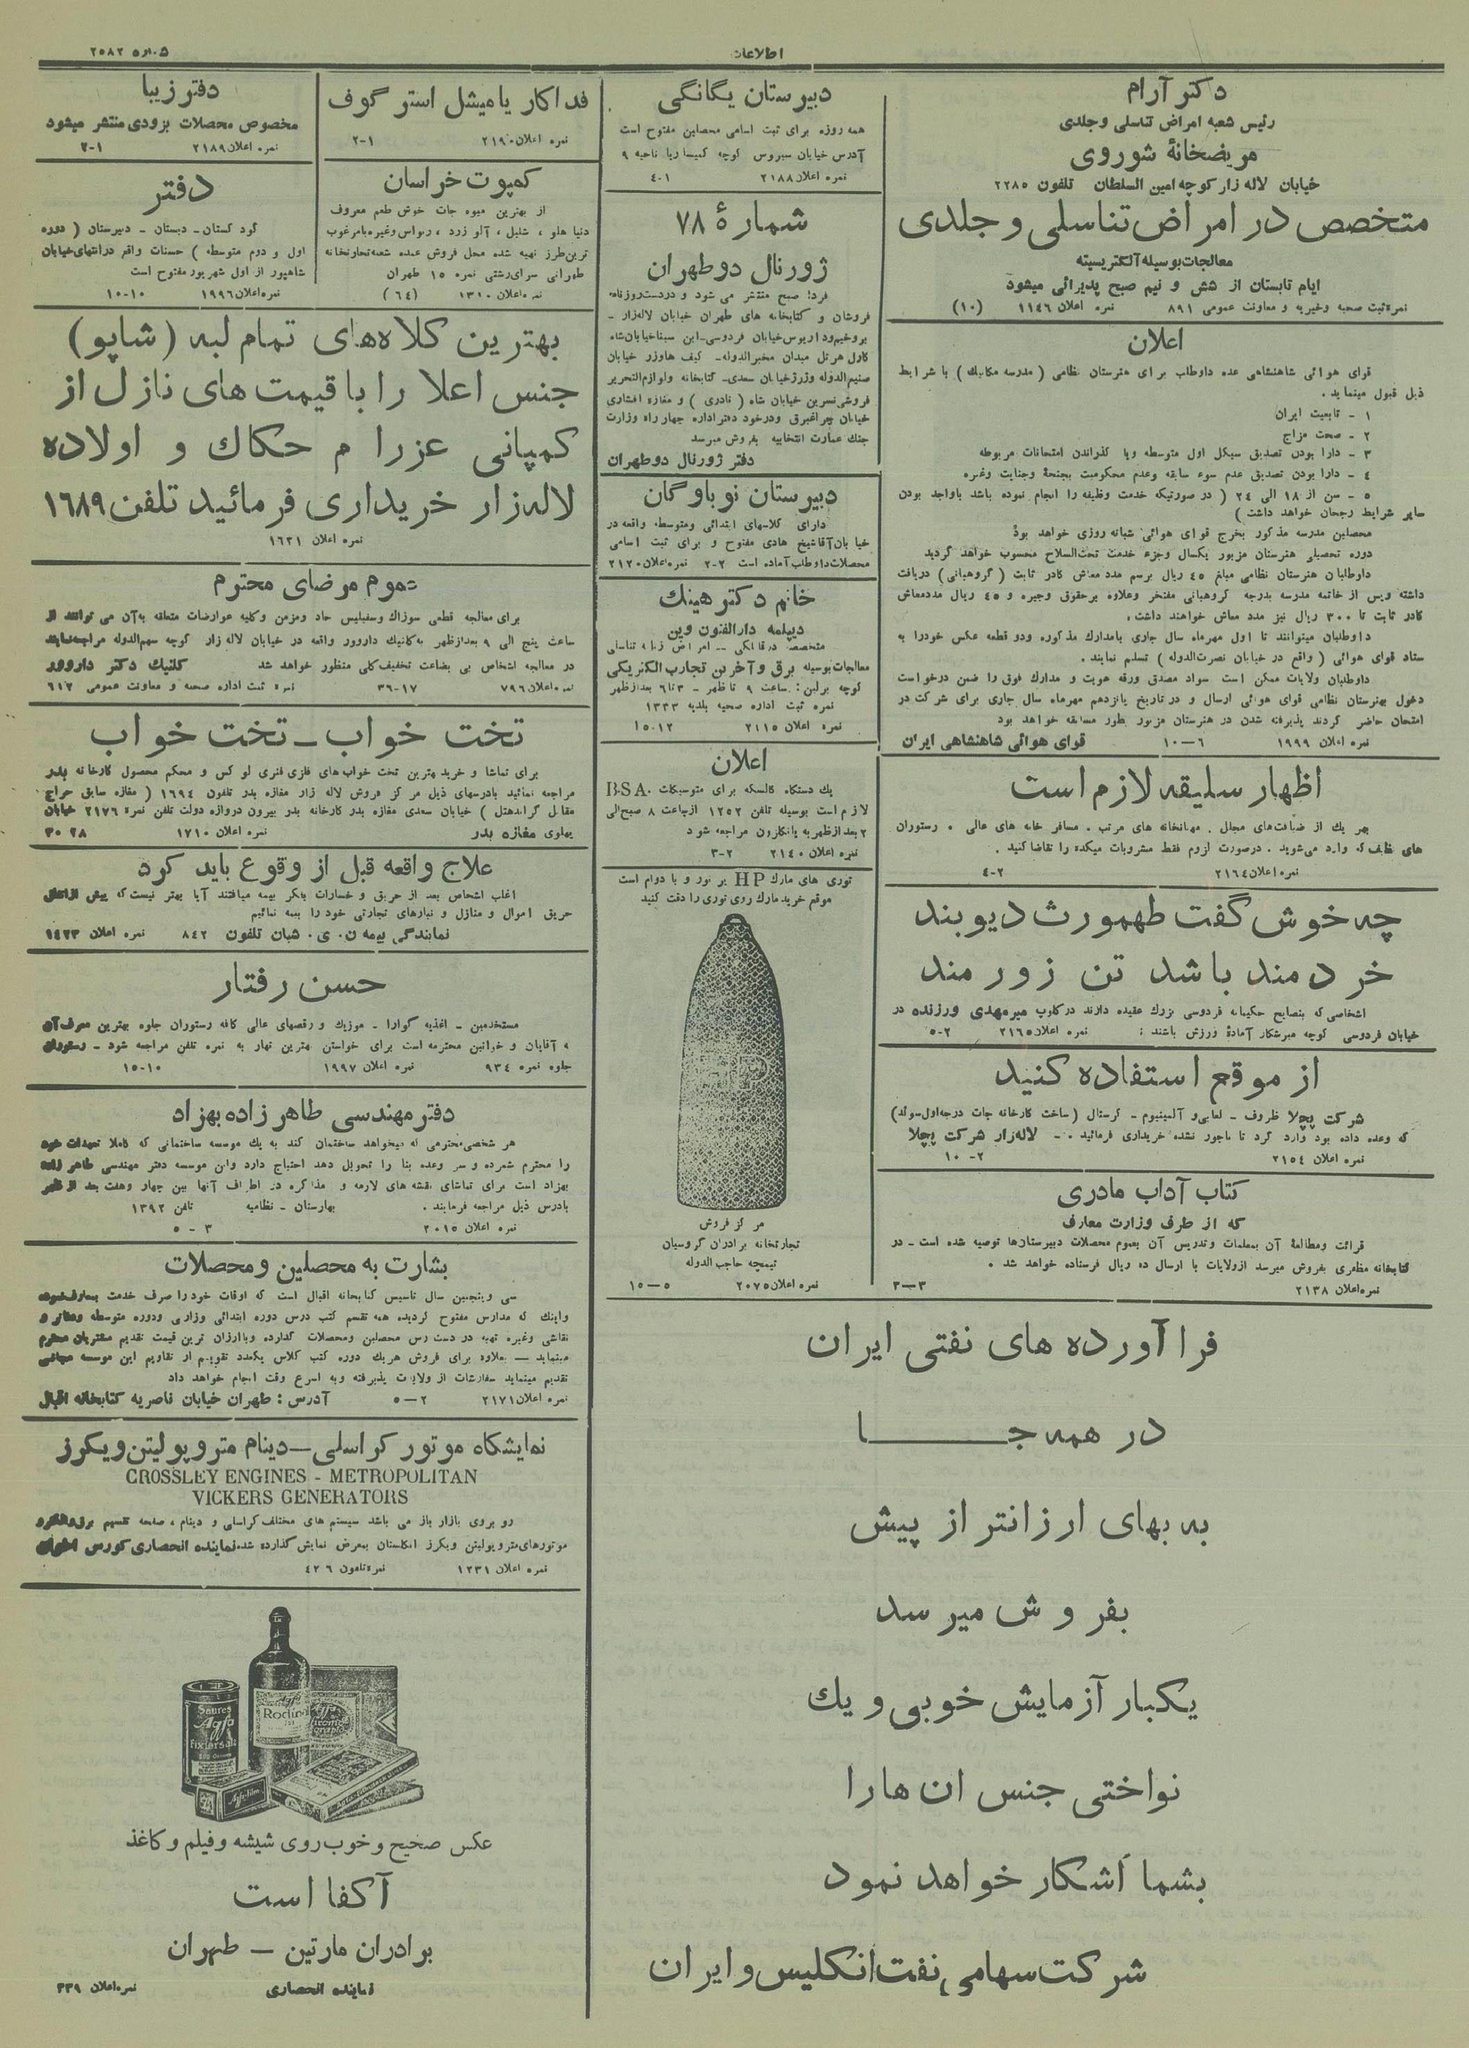 شماره ۲۵۸۲
اطلاعات
دکتر آرام
رئیس شعبه امراض تناسلی وجلدی
مریضخانهٔ شوروی
خیابان لاله زار کوچه امین السلطان تلفون ۲۲۸۵
متخصص در امراض تناسلی و جلدی
معالجات بوسیله آلکتریسیته
ایام تابستان از شش و نیم صبح پذیرائی میشود
نمره ثبت صحیه وخیریه و معاونت عمومی ۸۹۱ نمره اعلان ۱۱۴۶ (۱۰)
اعلان
قوای هوائی شاهنشاهی عده داوطلب برای هنرستان نظامی ( مدرسه مکانیک ) با شرایط
ذیل قبول مینماید .
۱ - تابعیت ایران
۲ - صحت مزاج
۳ - دارا بودن تصدیق سیکل اول متوسطه ویا گذراندن امتحانات مربوطه
۴ - دارا بودن تصدیق عدم سوء سابقه وعدم محکومیت بجنحهٔ وجنایت وغیره
۵ - سن از ۱۸ الی ۲۴ ( در صورتیکه خدمت وظیفه را انجام نموده باشد باواجد بودن
سایر شرایط رجحان خواهد داشت )
محصلین مدرسه مذکور بخرج قوای هوائی شبانه روزی خواهد بود
دوره تحصیلی هنرستان مزبور یکسال وجزء خدمت تحت‌السلاح محسوب خواهد گردید
داوطلبان هنرستان نظامی مبلغ ۴۵ ریال برسم مدد معاش کادر ثابت ( گروهبانی ) دریافت
داشته وپس از خاتمه مدرسه بدرجه گروهبانی مفتخر وعلاوه برحقوق وجیره و ۴۵ ریال مددمعاش
کادر ثابت تا ۳۰۰ ریال نیز مدد معاش خواهند داشت .
داوطلبان میتوانند تا اول مهرماه سال جاری بامدارک مذکوره ودو قطعه عکس خودرا به
ستاد قوای هوائی ( واقع در خیابان نصرت‌الدوله ) تسلم نمایند .
داوطلبان ولایات ممکن است سواد مصدق ورقه هویت و مدارک فوق را ضمن درخواست
دخول بهنرستان نظامی قوای هوائی ارسال و در تاریخ پانزدهم مهرماه سال جاری برای شرکت در
امتحان حاضر گردند پذیرفته شدن در هنرستان مزبور بطور مسابقه خواهد بود
نمره اعلان ۱۹۹۹ ۶—۱۰ قوای هوائی شاهنشاهی ایران
اظهار سلیقه لازم است
بهر یک از ضیافت‌های مجلل . مهمانخانه های مرتب . مسافر خانه های عالی . رستوران
های که وارد می‌شوید . درصورت لزوم فقط مشروبات میکده را تقاضا کنید .
نمره اعلان ۲۱۶۴ ۲-۴
چه خوش گفت طهمورث دیوبند
خردمند باشد تن زورمند
اشخاصی که بنصایح حکیمانه فردوسی بزرک عقیده دارند درکلوب میرمهدی ورزنده در
خیابان فردوسی کوچه میرشکار آمادهٔ ورزش باشند : نمره اعلان ۲۱۶۵ ۲-۵
از موقع استفاده کنید
شرکت پچلا ظروف - لعابی و آلمینیوم - کرستال (ساخت کارخانه جات درجه‌اول-سوئد)
که وعده داده بود وارد کرد تا ماجور نشده خریداری فرمائید . - لاله‌زار شرکت پچلا
نمره اعلان ۲۱۵۴ ۲-۱۰
کتاب آداب مادری
که از طرف وزارت معارف
قرائت ومطالعهٔ آن بمعلمات وتدریس آن بعموم محصلات دبیرستان‌ها توصیه شده است - در
کتابخانه مظفری بفروش میرسد ازولایات با ارسال ده ریال فرستاده خواهد شد .
نمره اعلان ۲۱۳۸ ۳—۳
دبیرستان یگانگی
همه روزه برای ثبت اسامی محصلین مفتوح است
آدرس خیابان سیروس کوچه کیمیا ریا ناحیه ۹
نمره اعلان ۲۱۸۸ ۱-۴
شمارهٔ ۷۸
ژورنال دو طهران
فردا صبح منتشر می شود و دردست روزنامه
فروشان و کتابخانه های طهران خیابان لاله‌زار -
بروخیم وداریوس خیابان فردوسی-ابن سیناخیابان‌شاه
کارل هرتل میدان مخبرالدوله- کیف هاوزر خیابان
صنیع‌الدوله وژرژخیابان سعدی- کتابخانه ولوازم‌التحریر
فروشی نسرین خیابان شاه ( نادری ) و مغازه افشاری
خیابان چراغبرق ودرخود دفتراداره چهار راه وزارت
جنک عمارت انتخابیه بفروش میرسد
دفتر ژورنال دو طهران
دبیرستان نوباوگان
دارای کلاسهای ابتدائی ومتوسطه واقعه در
خیابان آقاشیخ هادی مفتوح و برای ثبت اسامی
محصلات‌داوطلب آماده است ۲-۲ نمره‌اعلان ۲۱۲۰
خانم دکتر هینک
دیپلمه دارالفنون وین
متخصصه درقابلگی -- امراض زنانه تناسلی
معالجات بوسیله برق و آخرین تجارب الکتریکی
کوچه برلین : ساعت ۹ تا ظهر - ۳ تا ۶ بعدازظهر
نمره ثبت اداره صحیه بلدیه ۱۳۳۳
نمره اعلان ۲۱۱۵ ۱۲-۱۵
اعلان
یک دستگاه کالسکه برای متوسیکلت B.S.A
لازم است بوسیله تلفن ۱۲۵۲ ازساعت ۸ صبح‌الی
۲ بعدازظهر به پانکارون مراجعه شود
نمره اعلان ۲۱۴۰ ۲-۳
توری های مارک HP پر نور و با دوام است
موقع خرید مارک روی توری را دقت کنید
HP
مرکز فروش
تجارتخانه برادران گروسیان
تیمچه حاجب الدوله
نمره اعلان ۲۰۷۵ ۵—۱۵
فداکار یا میشل استر گوف
نمره اعلان ۲۱۹۰ ۱-۲
دفتر زیبا
مخصوص محصلات بزودی منتشر میشود
نمره اعلان ۲۱۸۹ ۱-۲
کمپوت خراسان
از بهترین میوه جات خوش طعم معروف
دنیا هلو ، شلیل ، آلو زرد ، ریواس وغیره بامرغوب
ترین‌طرز تهیه شده محل فروش عمده شعبه تجارتخانه
طهرانی سرای‌رشتی نمره ۱۵ طهران
نمره اعلان ۱۳۱۰ (۶۴)
دفتر
کودکستان- دبستان - دبیرستان ( دوره
اول و دوم متوسطه ) حسنات واقع درانتهای‌خیابان
شاهپور از اول شهریور مفتوح است
نمره اعلان ۱۹۹۶ ۱۰-۱۰
بهترین کلاه‌های تمام لبه (شاپو)
جنس اعلا را با قیمت های نازل از
کمپانی عزرا م حکاک و اولاده
لاله‌زار خریداری فرمائید تلفن ۱۶۸۹
نمره اعلان ۱۶۳۱
عموم مرضای محترم
برای معالجه قطعی سوزاک وسفیلیس حاد ومزمن وکلیه عوارضات متعلقه به‌آن می توانند از
ساعت پنج الی ۹ بعدازظهر به‌کلنیک داروور واقعه در خیابان لاله زار کوچه سهم‌الدوله مراجعه‌نمایند
در معالجه اشخاص بی بضاعت تخفیف‌کلی منظور خواهد شد کلنیک دکتر داروور
نمره اعلان ۷۹۶ ۱۷-۳۶ نمره ثبت اداره صحیه و معاونت عمومی ۶۱۲
تخت خواب - تخت خواب
برای تماشا و خرید بهترین تخت خواب‌های فلزی فنری لوکس و محکم محصول کارخانه پدر
مراجعه نمائید بآدرسهای ذیل مرکز فروش لاله زار مغازه پدر تلفون ۱۶۹۴ ( مغازه سابق حراج
مقابل گراندهتل ) خیابان سعدی مغازه پدر کارخانه پدر بیرون دروازه دولت تلفن نمره ۲۱۷۶ خیابان
پهلوی مغازه پدر نمره اعلان ۱۷۱۰ ۲۸ ۳۰
علاج واقعه قبل از وقوع باید کرد
اغلب اشخاص بعد از حریق و خسارات بفکر بیمه میافتند آیا بهتر نیست‌که پیش ازاتفاق
حریق اموال و منازل و انبارهای تجارتی خود را بیمه نمائیم
نمایندگی بیمه ن . ی . شبان تلفون ۸۴۲ نمره اعلان ۱۴۲۳
حسن رفتار
مستخدمین - اغذیه گوارا - موزیک و رقصهای عالی کافه رستوران جلوه بهترین معرف‌آن
به آقایان و خوانین محترمه است برای خواستن بهترین نهار به نمره تلفن مراجعه شود - رستوران
جلوه نمره ۹۳۴ نمره اعلان ۱۹۹۷ ۱۰-۱۵
دفتر مهندسی طاهر زاده بهزاد
هر شخص محترمی که میخواهد ساختمان کند به یک موسسه ساختمانی که کاملا تعهدات خود
را محترم شمرده و سر وعده بنا را تحویل دهد احتیاج دارد واین موسسه دفتر مهندسی طاهر زاده
بهزاد است برای تماشای نقشه های لازمه و مذاکره در اطراف آنها بین چهار وهفت بعد از ظهر
بآدرس ذیل مراجعه فرمایند . بهارستان - نظامیه تلفن ۱۳۹۲
نمره اعلان ۲۰۱۵ ۳ - ۵
بشارت به محصلین و محصلات
سی وپنجمین سال تاسیس کتابخانه اقبال است که اوقات خود را صرف خدمت بمعارف‌نموده
واینک که مدارس مفتوح گردیده همه قسم کتب درس دوره ابتدائی وزاری ودوره متوسطه ودفاتر و
نقاشی وغیره تهیه در دست‌رس محصلین ومحصلات گذارده وباارزان ترین قیمت تقدیم مشتریان محترم
مینماید — بعلاوه برای فروش هریک دوره کتب کلاس یکعدد تقویم از تقاویم این موسسه مجانی
تقدیم مینماید سفارشات از ولایات پذیرفته وبه اسرع وقت انجام خواهد داد
نمره اعلان ۲۱۷۱ ۲—۵ آدرس : طهران خیابان ناصریه کتابخانه اقبال
نمایشگاه موتور کراسلی - دینام متروپولیتن ویکرز
CROSSLEY ENGINES - METROPOLITAN
VICKERS GENERATORS
رو بروی بازار باز می باشد سیستم های مختلف کراسلی و دینام ، صفحه تقسیم برق
موتورهای متروپولیتن ویکرز انگلستان بمعرض نمایش گذارده شده نماینده انحصاری کورس اخوان
نمره اعلان ۱۲۳۱ نمره تلفون ۴۲۶
Saures
Agfa
Fixiersalz
Agfa
Rodinal
Agfa
Agfa-film
عکس صحیح و خوب روی شیشه و فیلم و کاغذ
آکفا است
برادران مارتین — طهران
نماینده انحصاری نمره اعلان ۳۳۹
فرآورده های نفتی ایران
در همه جا
به بهای ارزانتر از پیش
بفروش میرسد
یکبار آزمایش خوبی و یک
نواختی جنس ان ها را
بشما آشکار خواهد نمود
شرکت سهامی نفت انگلیس و ایران